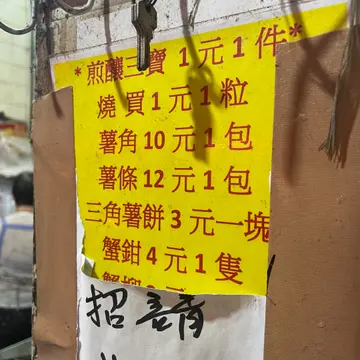 *煎釀三寶 1元1件*
燒買1元1粒
薯角10元1包
薯條12元1包
三角薯餅3元一塊
蟹鉗4元1隻
招請